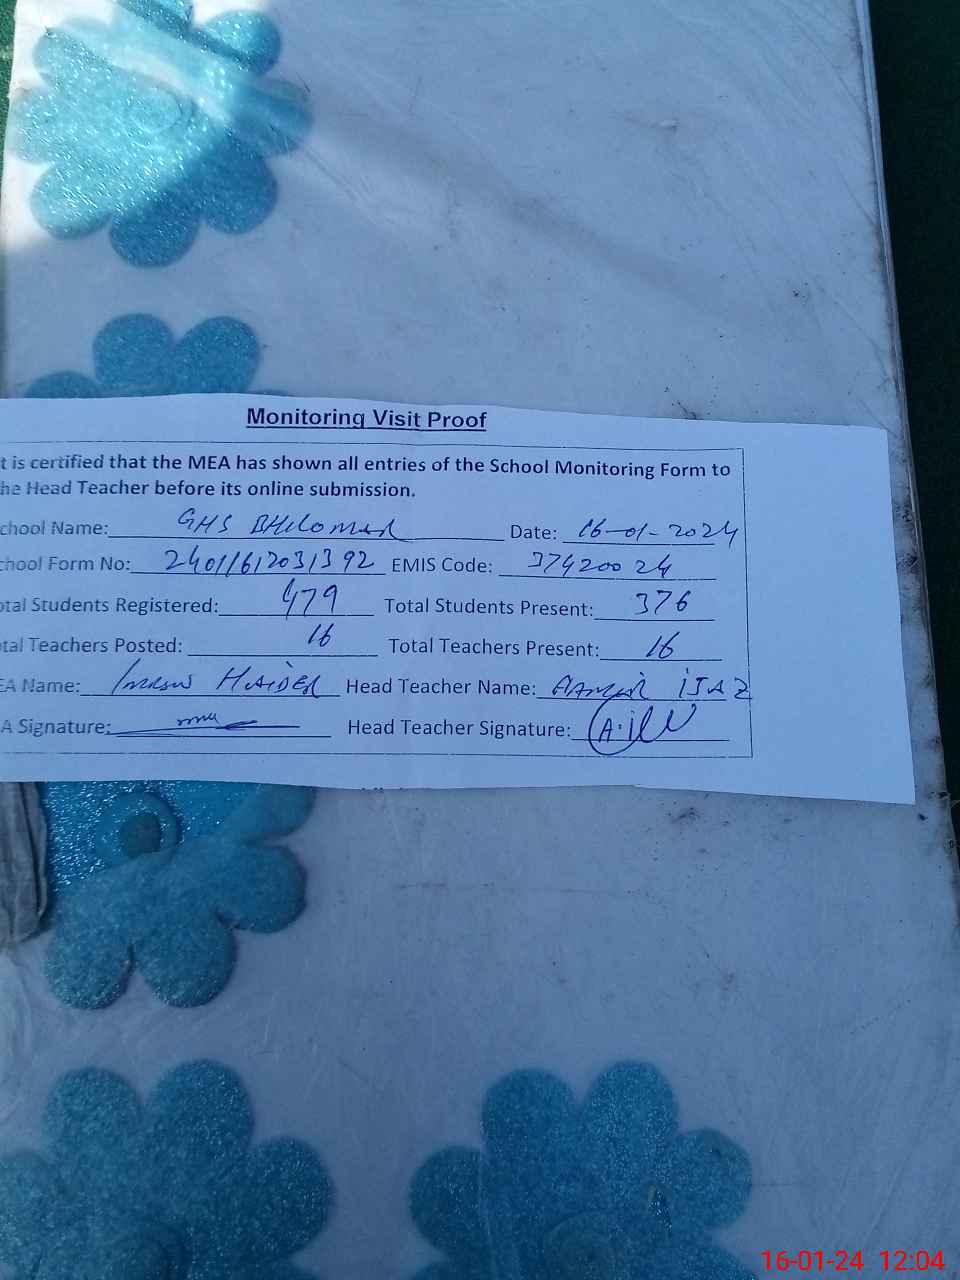 Monitoring Visit Proof
t is certified that the MEA has shown all entries of the School Monitoring Form to
he Head Teacher before its online submission.
chool Name: GHS BHILOMAR Date: 16-01-2024
chool Form No: EMIS Code: 37420024
otal Students Registered: 479 Total Students Present: 376
otal Teachers Posted: 16 Total Teachers Present: 16
EA Name: Imran HAIDER Head Teacher Name: AAMIR IJAZ
A Signature: Head Teacher Signature:
16-01-24 12:04